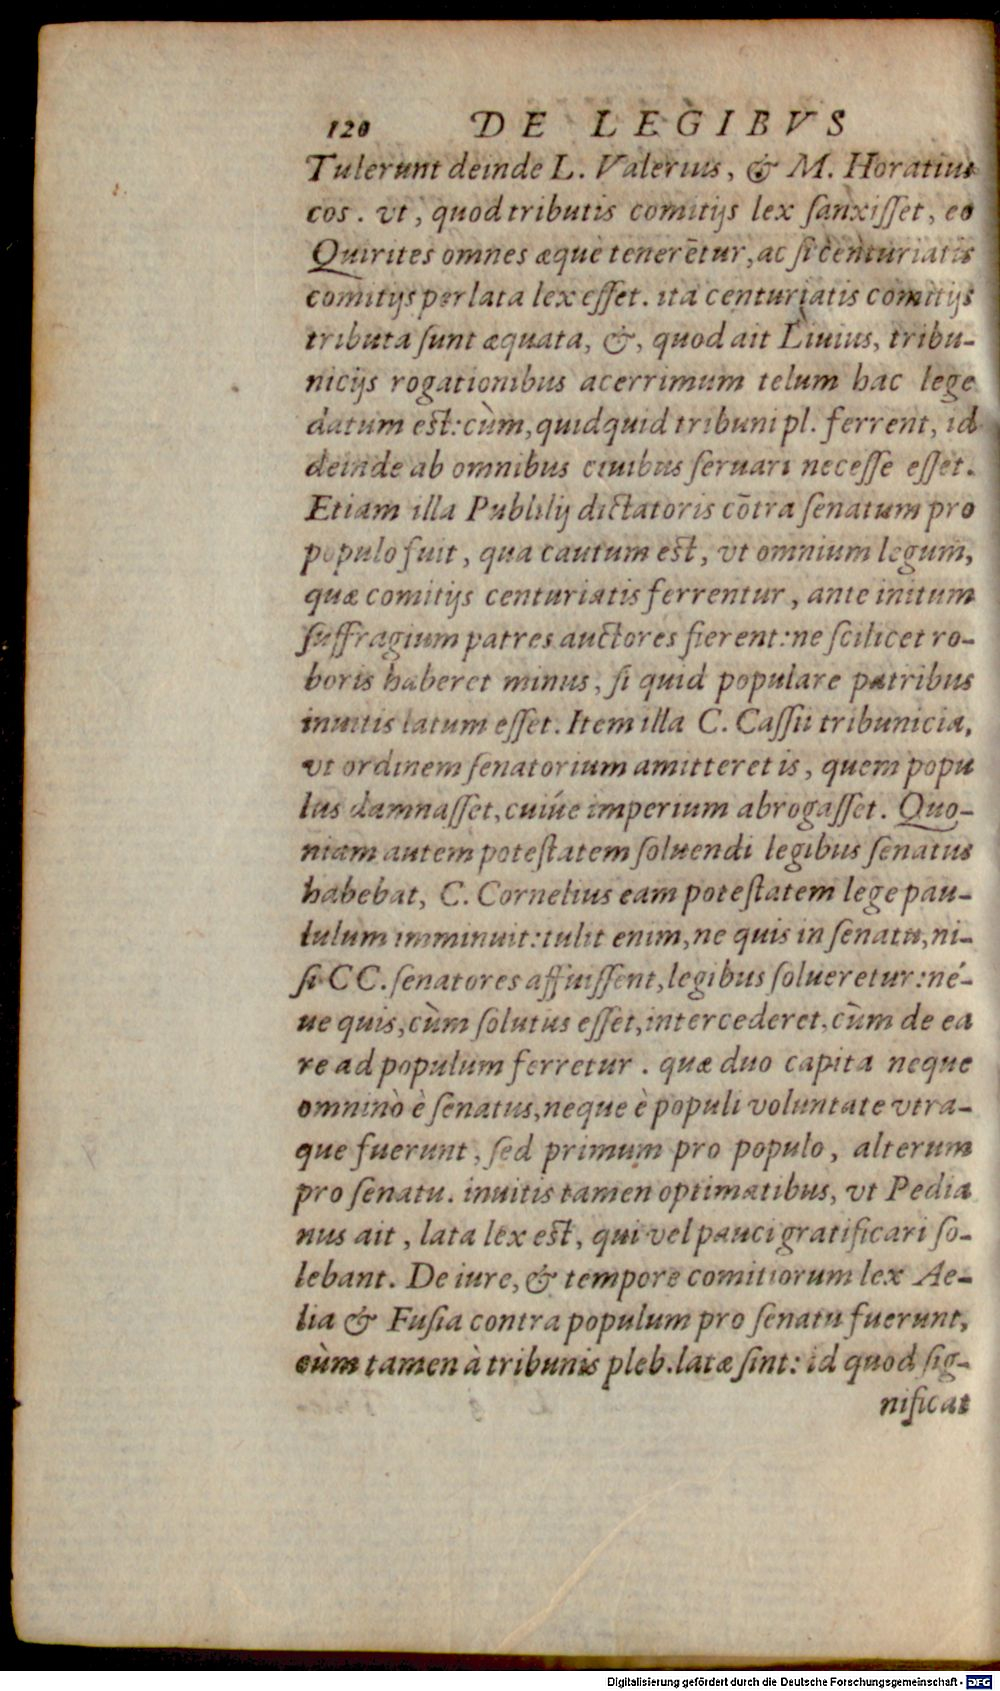 120 DE LEGIBVS
Tulerunt deinde L. Valerius, & M. Horatius
cos. vt, quod tributis comitijs lex ſanxiſſet, eo
Quirites omnes æquè tenerētur, ac ſi centuriatis
comitijs perlata lex eſſet. ita centuriatis comitijs
tributa ſunt æquata, &, quod ait Liuius, tribu-
nicijs rogationibus acerrimum telum hac lege
datum est: cùm, quidquid tribuni pl. ferrent, id
deinde ab omnibus ciuibus ſeruari neceſſe eſſet.
Etiam illa Publilij dictatoris cōtra ſenatum pro
populo fuit, qua cautum est, vt omnium legum,
quæ comitijs centuriatis ferrentur, ante initum
ſuffragium patres auctores fierent: ne ſcilicet ro-
boris haberet minus, ſi quid populare patribus
inuitis latum eſſet. Item illa C. Caſſii tribunicia,
vt ordinem ſenatorium amitteret is, quem popu
lus damnaſſet, cuiúe imperium abrogaſſet. Quo-
niam autem poteſtatem ſoluendi legibus ſenatus
habebat, C. Cornelius eam poteſtatem lege pau-
lulum imminuit: tulit enim, ne quis in ſenatu, ni-
ſi CC. ſenatores affuiſſent, legibus ſolueretur: né-
ue quis, cùm ſolutus eſſet, intercederet, cùm de ea
re ad populum ferretur. quæ duo capita neque
omninò è ſenatus, neque è populi voluntate vtra-
que fuerunt, ſed primum pro populo, alterum
pro ſenatu. inuitis tamen optimatibus, vt Pedia
nus ait, lata lex est, qui vel pauci gratificari ſo-
lebant. De iure, & tempore comitiorum lex Ae-
lia & Fuſia contra populum pro ſenatu fuerunt,
cùm tamen à tribunis pleb. latæ ſint: id quod ſig-
nificat
Digitalisierung gefördert durch die Deutsche Forschungsgemeinschaft - DFG